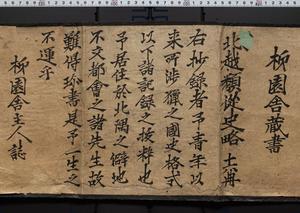 柳園舎蔵書
北越類従史略 十再
右抄録者予青年以
来所渉猟之國史格式
以下諸記録之抜粋也
予居住於北隅之僻地
不交都會之諸先生故
難得珍書是予一生之
不運乎
柳園舎主人誌